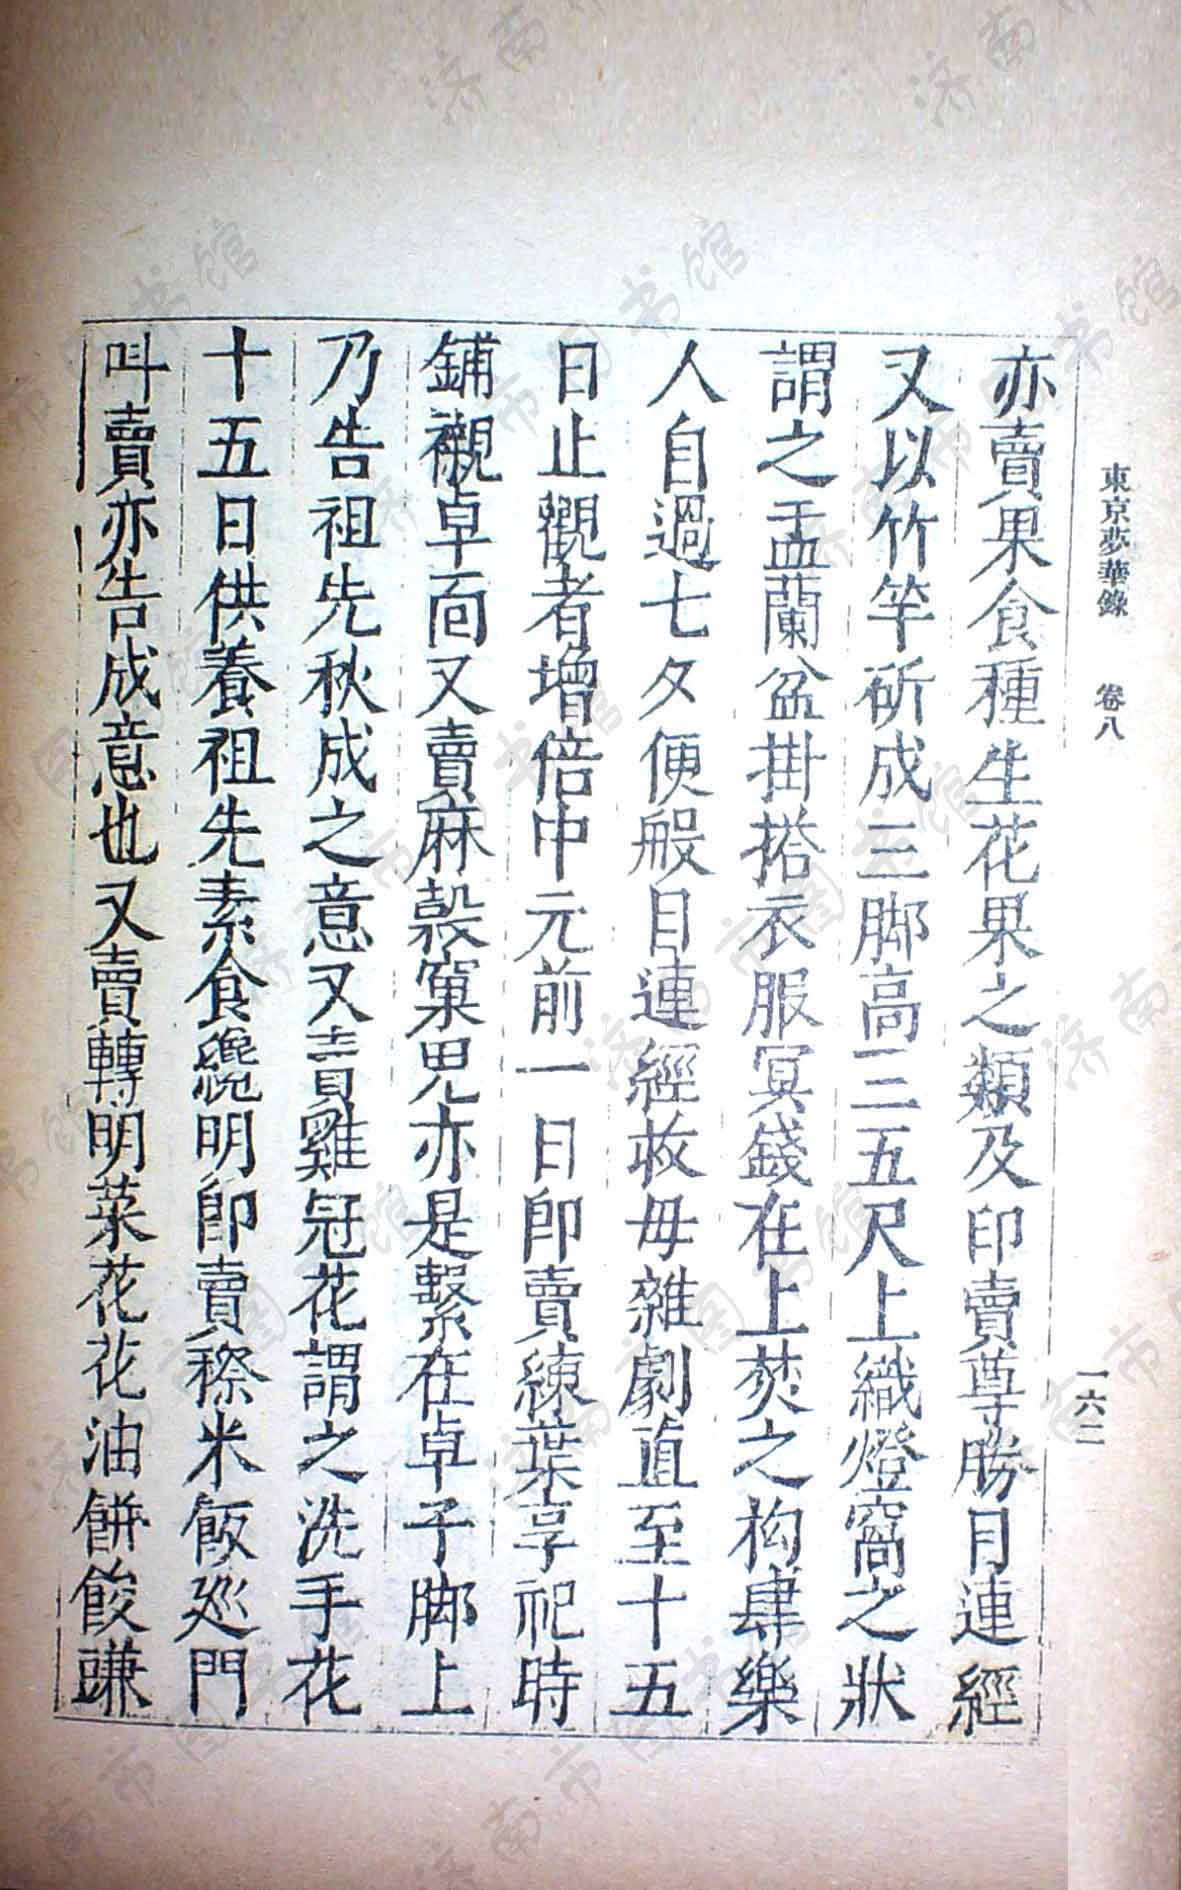 東京夢華錄　卷八
一六二
亦賣果食種生花果之類及印賣尊勝目連經
又以竹竿斫成三脚高三五尺上織燈窩之狀
謂之盂蘭盆掛搭衣服冥錢在上焚之构肆樂
人自過七夕便般目連經救母雜劇直至十五
日止觀者增倍中元前一日卽賣練葉享祀時
鋪襯卓面又賣麻穀窠兒亦是繫在卓子脚上
乃告祖先秋成之意又賣雞冠花謂之洗手花
十五日供養祖先素食纔明卽賣穄米飯廵門
叫賣亦告成意也又賣轉明菜花花油餅餕豏
济南市图书馆